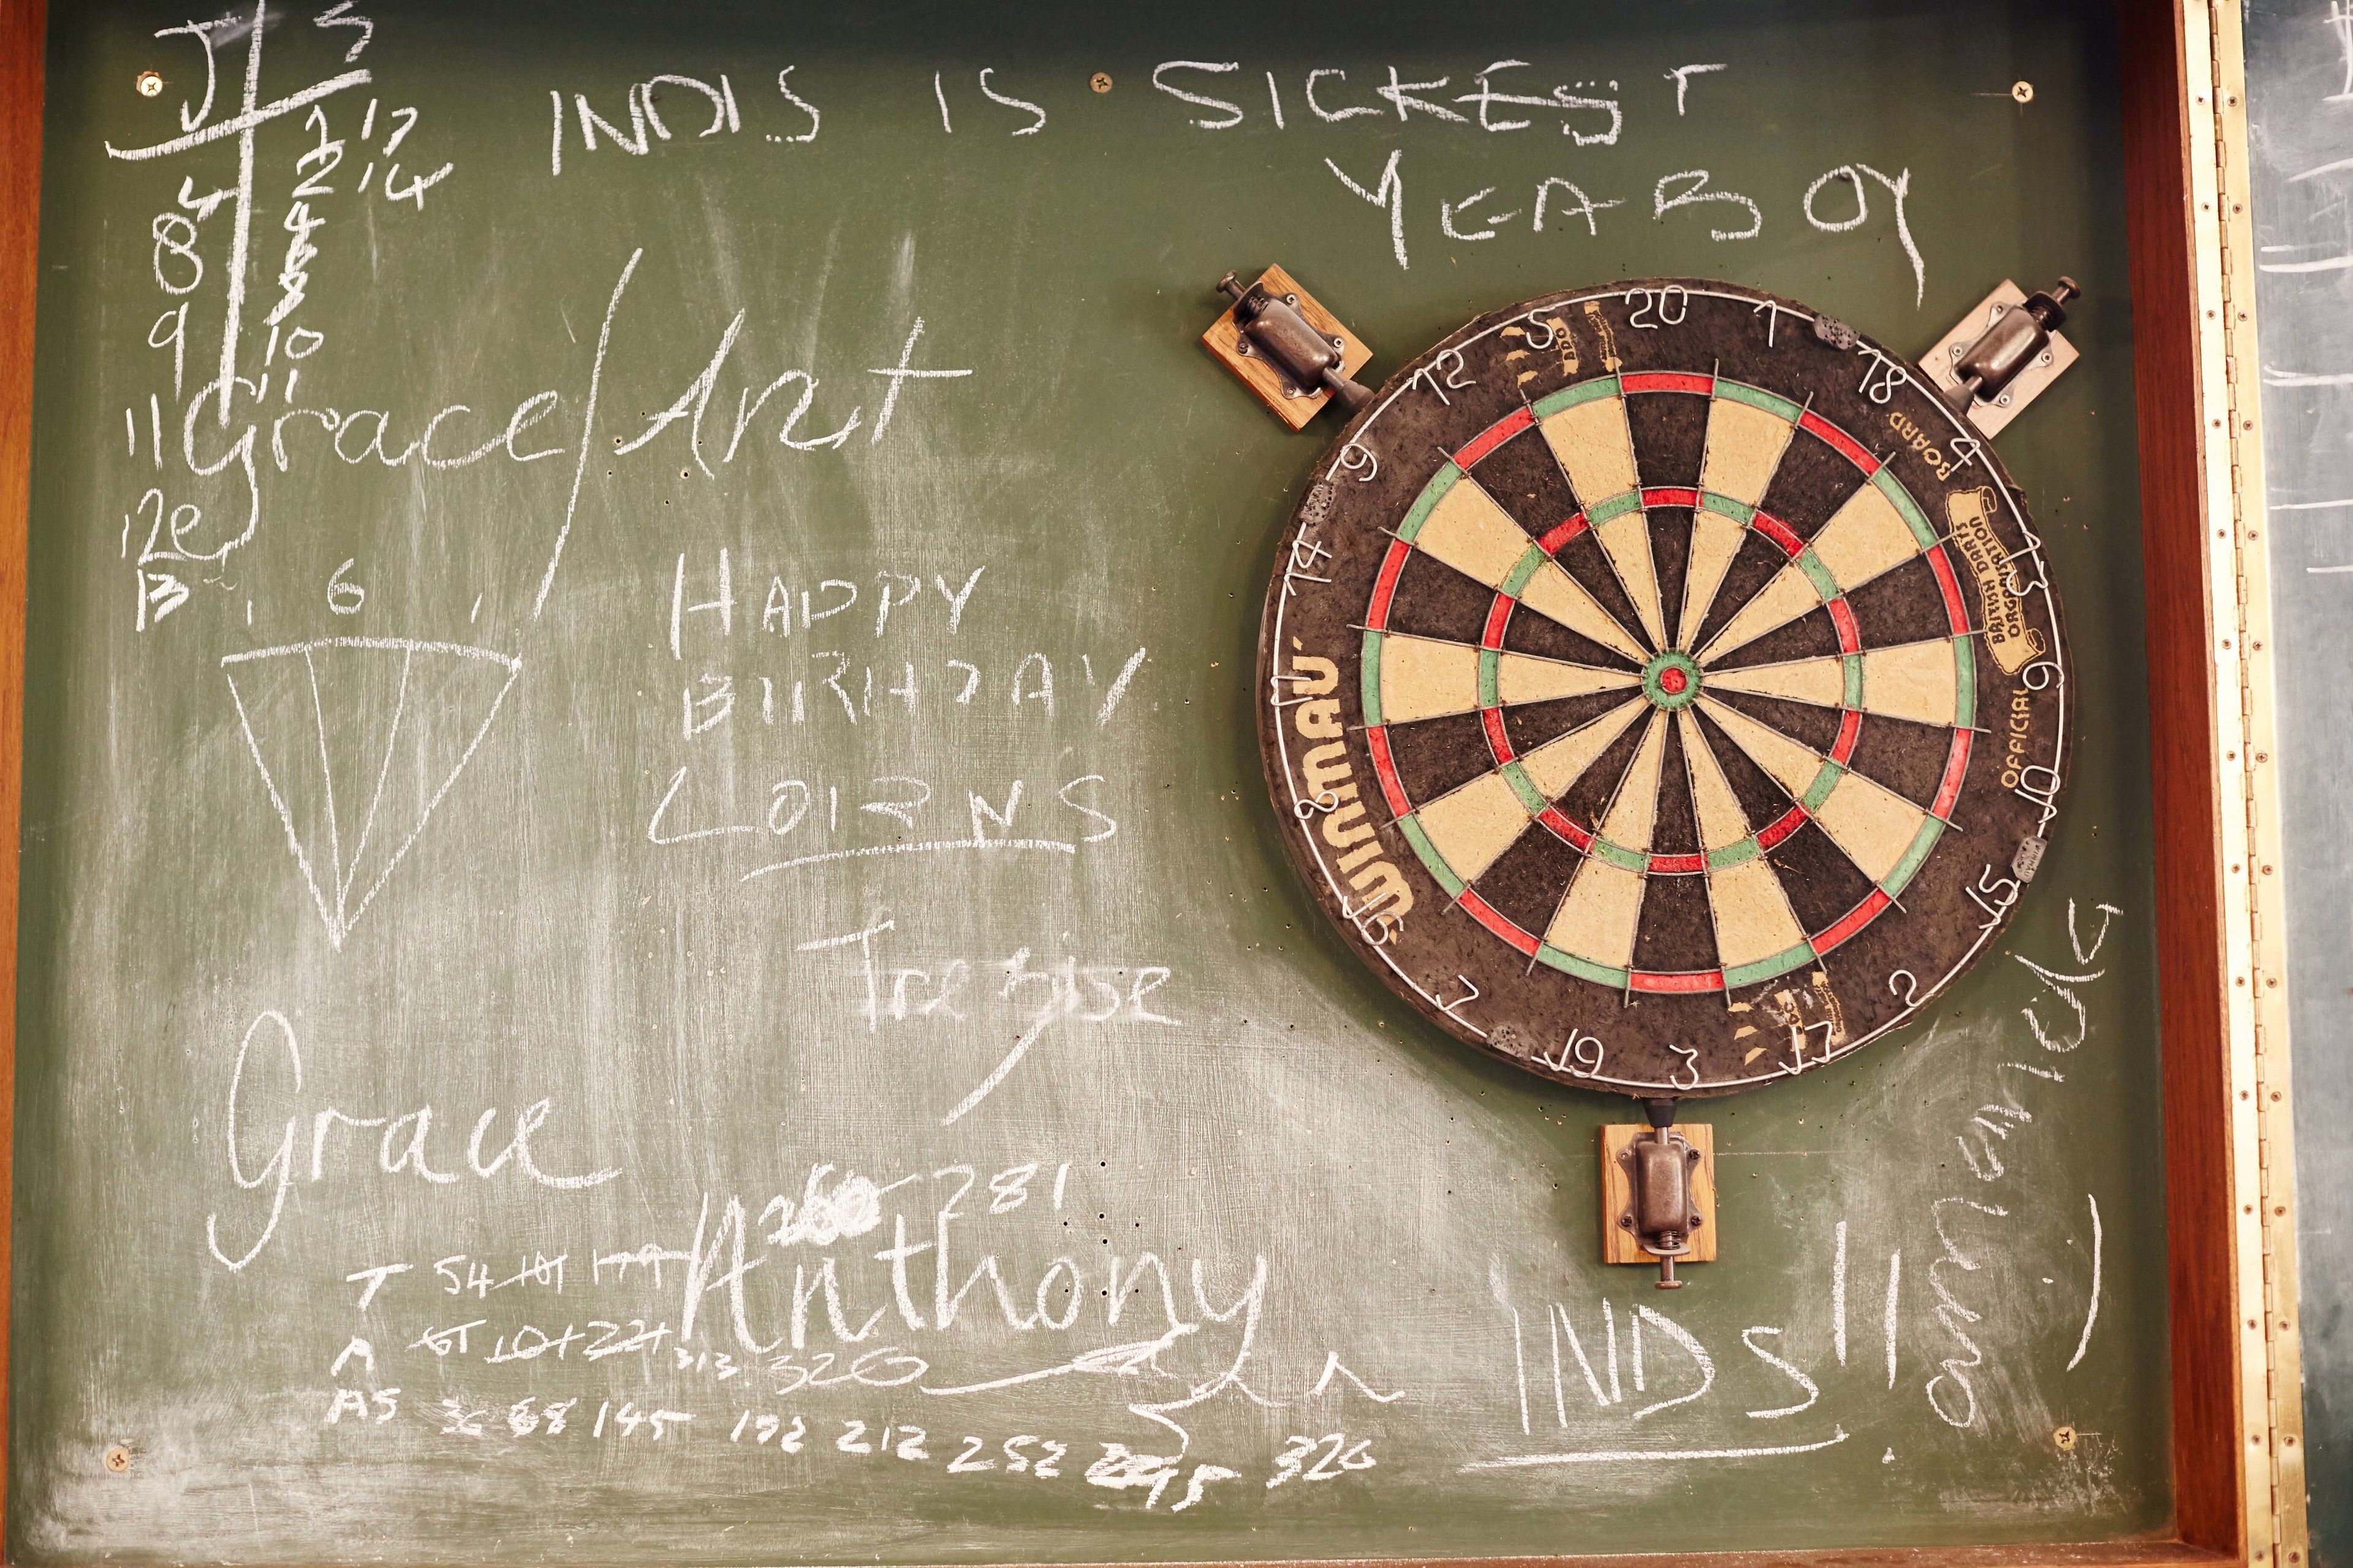 J S
1 17
2 14
4
8
9 10
11 11
12
13
INDIS IS SICKEST
YEABOY
Grace/Art
1 6 1
HAPPY
BIRHDAY
LOIRNS
Grace
281
Anthony
T 54
A 313 320
AS 36 68 145 192 212 252 295 326
INDS!!
maverick
20 1 18 4 13 6 10 15 2 17 3 19 7 16 8 11 14 9 12 5
BDO
BOARD
BRITISH DARTS
ORGANISATION
OFFICIAL
WINMAU